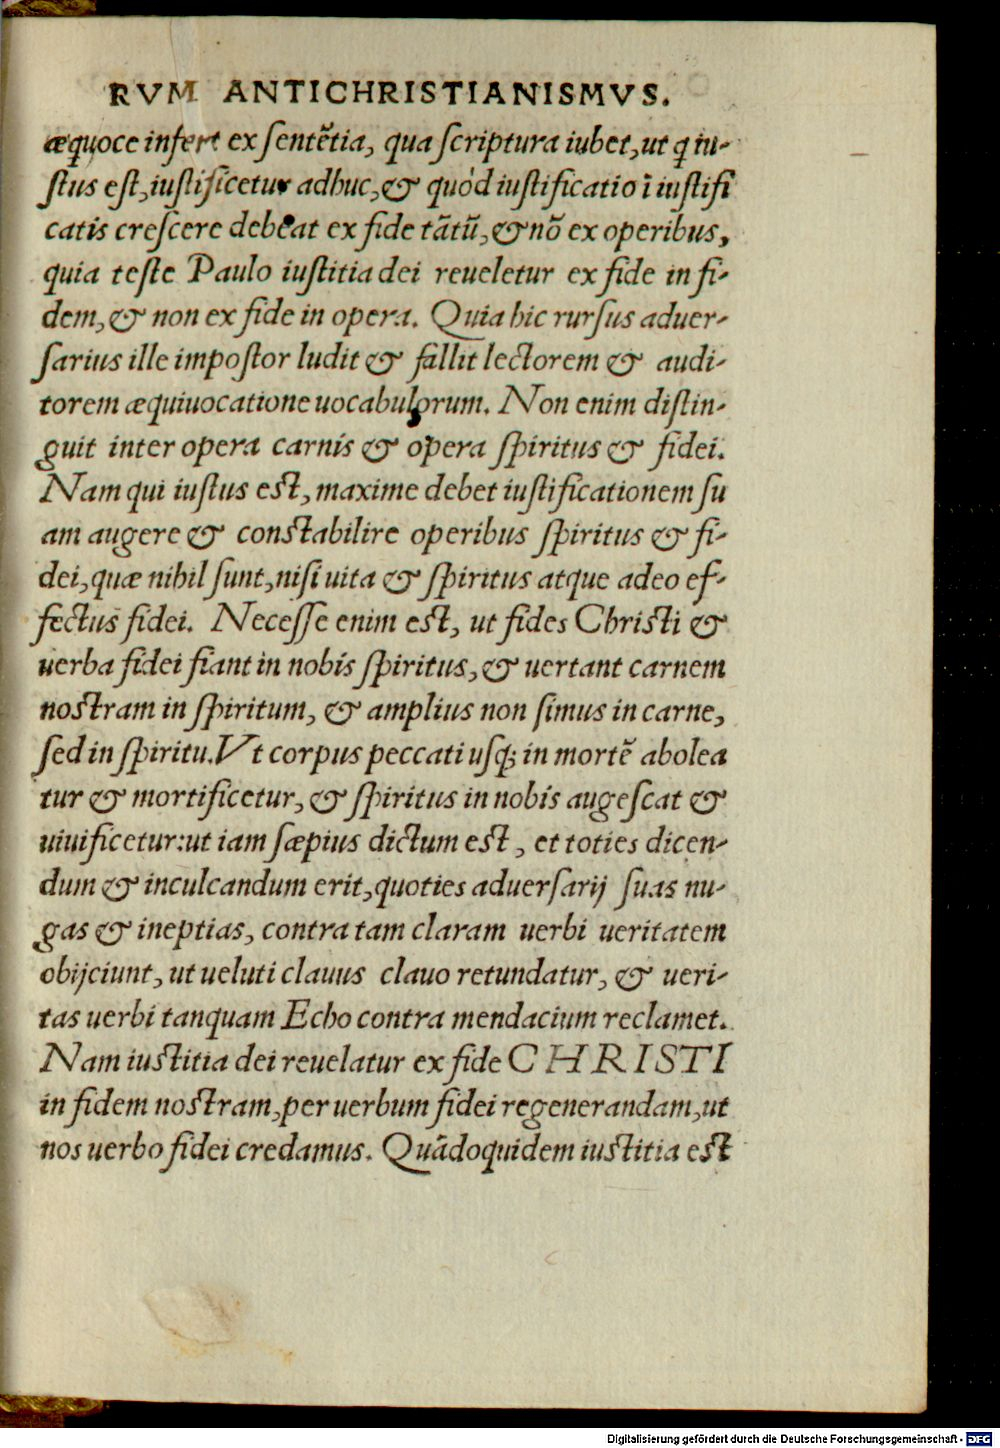 RVM ANTICHRISTIANISMVS.
æquoce infert ex sentētia, qua scriptura iubet, ut q iu-
stus est, iustificetur adhuc, & quòd iustificatio ī iustifi
catis crescere debeat ex fide tātū, & nō ex operibus,
quia teste Paulo iustitia dei reueletur ex fide in fi-
dem, & non ex fide in opera. Quia hic rursus aduer-
sarius ille impostor ludit & fallit lectorem & audi-
torem æquiuocatione uocabulorum. Non enim distin-
guit inter opera carnis & opera spiritus & fidei.
Nam qui iustus est, maxime debet iustificationem su
am augere & constabilire operibus spiritus & fi-
dei, quæ nihil sunt, nisi uita & spiritus atque adeo ef-
fectus fidei. Necesse enim est, ut fides Christi &
uerba fidei fiant in nobis spiritus, & uertant carnem
nostram in spiritum, & amplius non simus in carne,
sed in spiritu. Vt corpus peccati usq; in mortē abolea
tur & mortificetur, & spiritus in nobis augescat &
uiuificetur: ut iam sæpius dictum est, et toties dicen-
dum & inculcandum erit, quoties aduersarij suas nu-
gas & ineptias, contra tam claram uerbi ueritatem
obijciunt, ut ueluti clauus clauo retundatur, & ueri-
tas uerbi tanquam Echo contra mendacium reclamet.
Nam iustitia dei reuelatur ex fide CHRISTI
in fidem nostram, per uerbum fidei regenerandam, ut
nos uerbo fidei credamus. Quādoquidem iustitia est
Digitalisierung gefördert durch die Deutsche Forschungsgemeinschaft - DFG